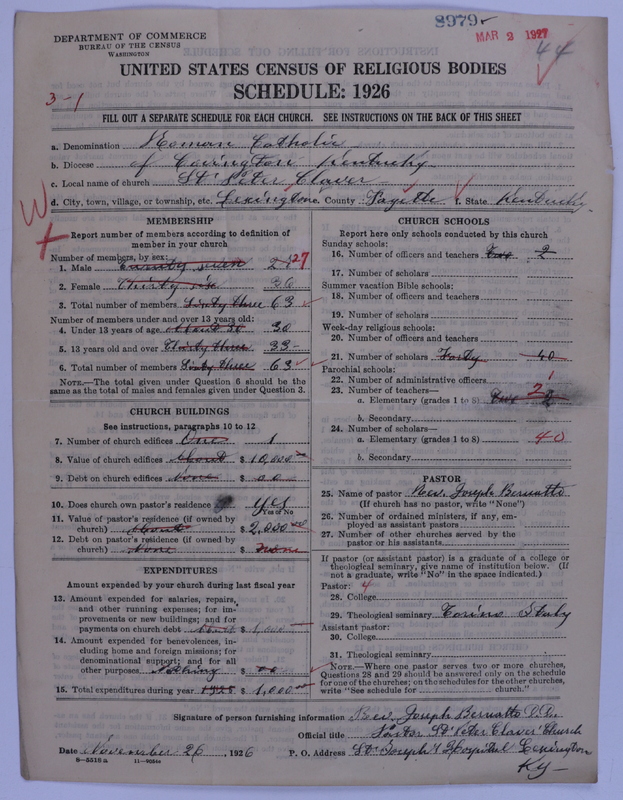 8979
MAR 2 1927
44
DEPARTMENT OF COMMERCE
BUREAU OF THE CENSUS
WASHINGTON
UNITED STATES CENSUS OF RELIGIOUS BODIES
SCHEDULE: 1926
3-1
FILL OUT A SEPARATE SCHEDULE FOR EACH CHURCH. SEE INSTRUCTIONS ON THE BACK OF THIS SHEET
a. Denomination Roman Catholic
b. Diocese of Covington Kentucky
c. Local name of church St Peter Claver
d. City, town, village, or township, etc. Lexington e. County Fayette f. State Kentucky
MEMBERSHIP
Report number of members according to definition of member in your church
Number of members, by sex:
1. Male Twenty seven 27
2. Female Thirty six 36
3. Total number of members Sixty three 63
Number of members under and over 13 years old:
4. Under 13 years of age About 30 30
5. 13 years old and over Thirty three 33
6. Total number of members Sixty three 63
NOTE.—The total given under Question 6 should be the same as the total of males and females given under Question 3.
CHURCH BUILDINGS
See instructions, paragraphs 10 to 12
7. Number of church edifices One 1
8. Value of church edifices About $ 10,000
9. Debt on church edifices None $ 00
10. Does church own pastor's residence yes
Yes or No
11. Value of pastor's residence (if owned by church) About $ 2,000
12. Debt on pastor's residence (if owned by church) None $ None
EXPENDITURES
Amount expended by your church during last fiscal year
13. Amount expended for salaries, repairs, and other running expenses; for improvements or new buildings; and for payments on church debt About $ 1,000
14. Amount expended for benevolences, including home and foreign missions; for denominational support; and for all other purposes Nothing $ 00
15. Total expenditures during year 1925 $ 1,000
CHURCH SCHOOLS
Report here only schools conducted by this church
Sunday schools:
16. Number of officers and teachers Two 2
17. Number of scholars
Summer vacation Bible schools:
18. Number of officers and teachers
19. Number of scholars
Week-day religious schools:
20. Number of officers and teachers
21. Number of scholars Forty 40
Parochial schools:
22. Number of administrative officers 1
23. Number of teachers—
a. Elementary (grades 1 to 8) Two 2 2
b. Secondary
24. Number of scholars—
a. Elementary (grades 1 to 8) 40
b. Secondary
PASTOR
25. Name of pastor Rev. Joseph Bernatto
(If church has no pastor, write "None")
26. Number of ordained ministers, if any, employed as assistant pastors
27. Number of other churches served by the pastor or his assistants
If pastor (or assistant pastor) is a graduate of a college or theological seminary, give name of institution below. (If not a graduate, write "No" in the space indicated.)
Pastor:
28. College
29. Theological seminary Torino Italy
Assistant pastor:
30. College
31. Theological seminary
NOTE.—Where one pastor serves two or more churches, Questions 28 and 29 should be answered only on the schedule for one of the churches; on the schedules for the other churches, write "See schedule for church."
Signature of person furnishing information Rev. Joseph Bernatto D.D.
Official title Pastor St Peter Claver Church
Date November 26, 1926 P. O. Address St Joseph's Hospital Lexington
Ky
8—5519 a 11—9054a